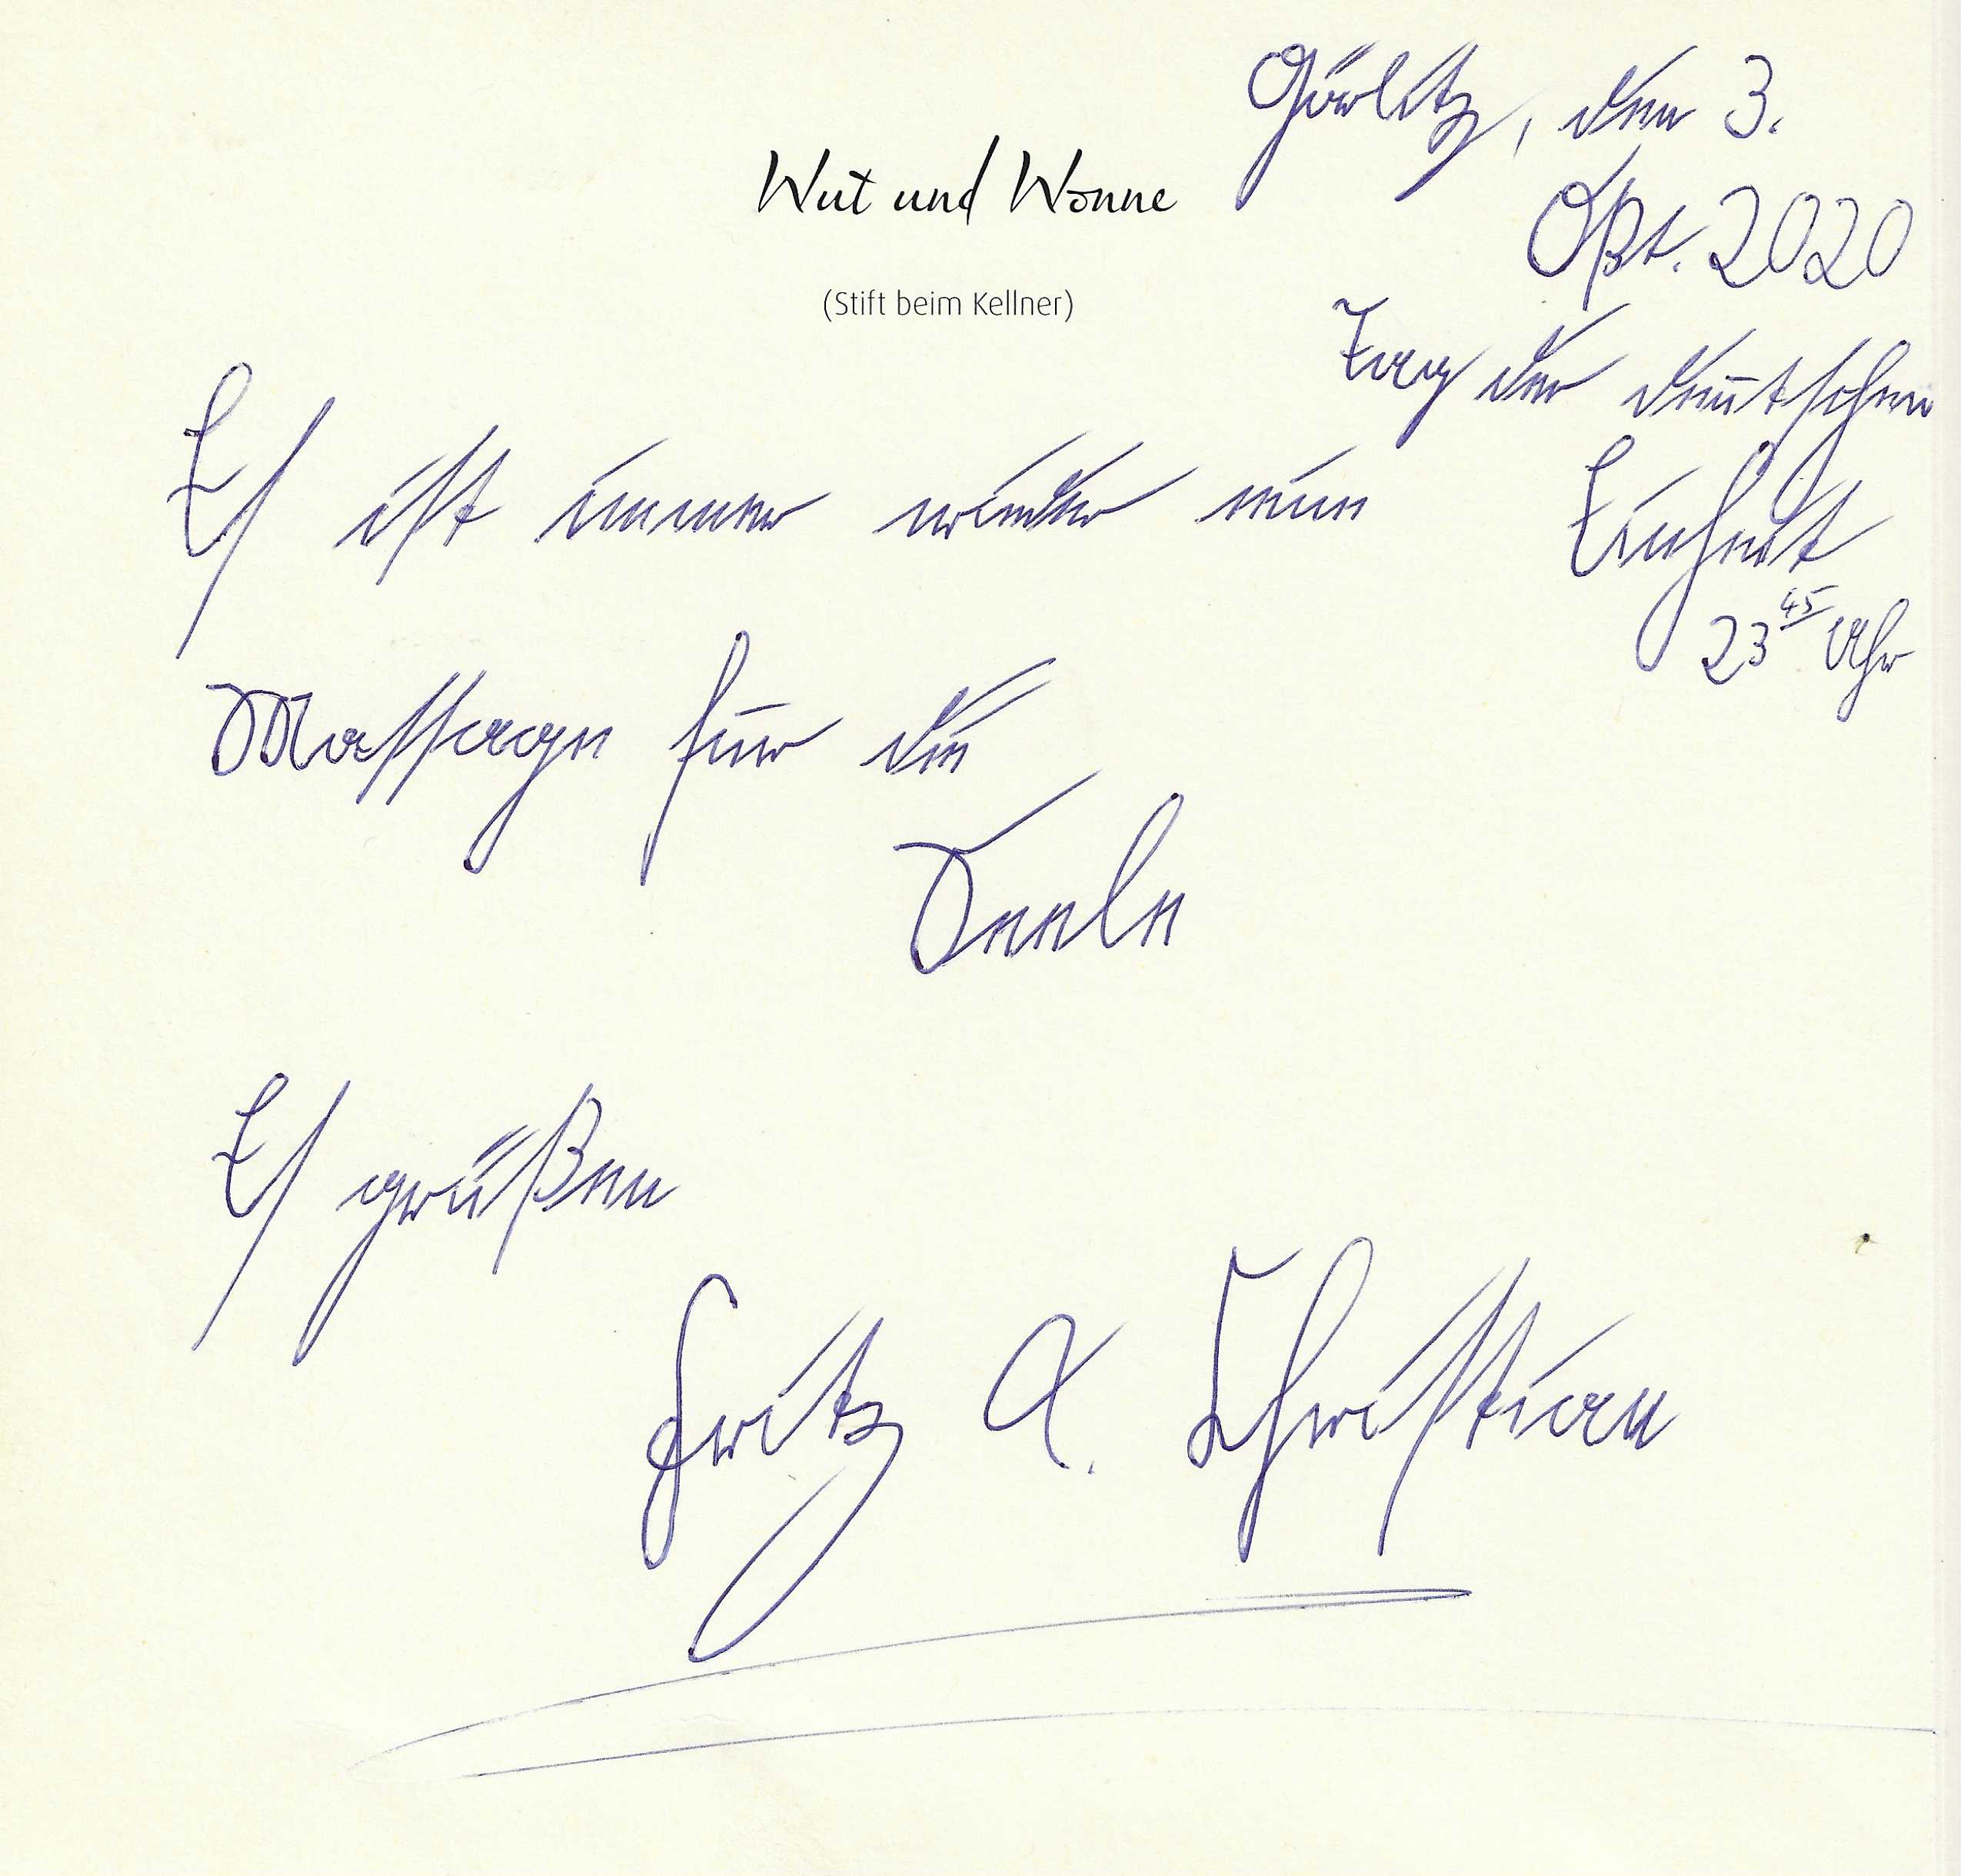 Görlitz, den 3.
Okt. 2020
Tag der deutschen
Einheit
23⁴⁵ Uhr
Wut und Wonne
(Stift beim Kellner)
Es ist immer wieder eine
Massage für die
Seele
Es grüßen
Fritz A. Christian